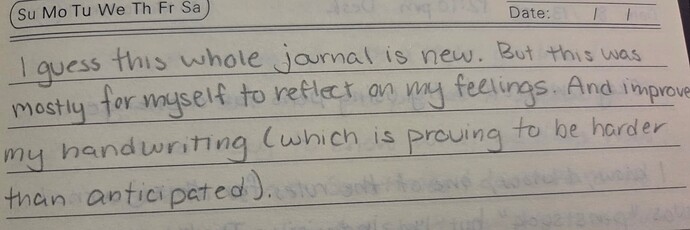 Su Mo Tu We Th Fr Sa Date: / /
I guess this whole journal is new. But this was
mostly for myself to reflect on my feelings. And improve
my handwriting (which is proving to be harder
than anticipated).